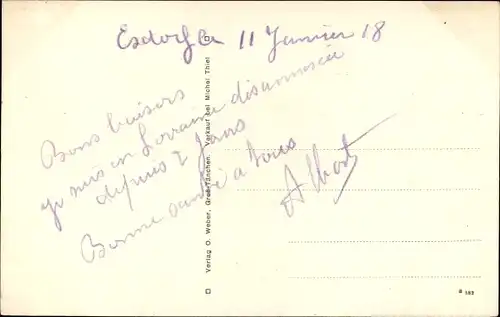 Esdorf le 11 Janvier 18
Bons baisers
je suis en Lorraine désannoxée
depuis 2 jours
Bonne santé à tous
Albert
Verlag O. Weber, Groß-Tänchen. Verkauf bei Michel Thiel